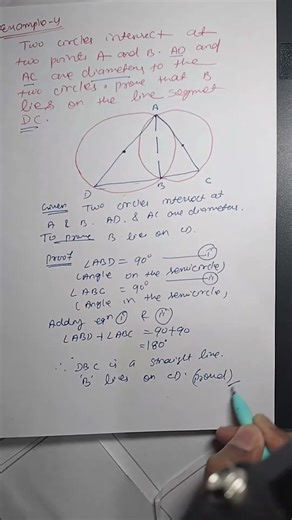 Example-4
Two circles intersect at
two points A and B. AD and
AC are diameters to the
two circles. prove that B
lies on the line segmet
DC.
A
D
B
C
Given Two circles intersect at
A & B. AD. & AC are diameters.
To prove B lies on CD.
Proof
∠ABD = 90° — (i)
(Angle on the semicircle)
∠ABC = 90° — (ii)
(Angle in the semicircle)
Adding eqn (i) & (ii)
∠ABD + ∠ABC = 90+90
= 180°
∴ DBC is a straight line.
'B' lies on CD. (proved)